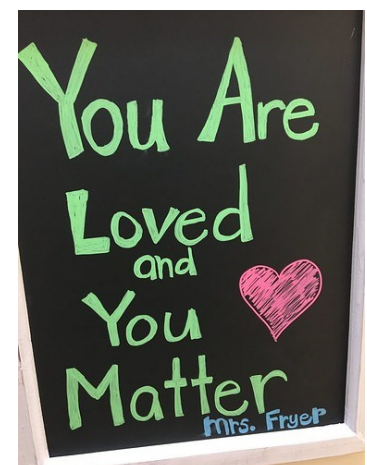 You Are
Loved
and
You
Matter
Mrs. Fryer